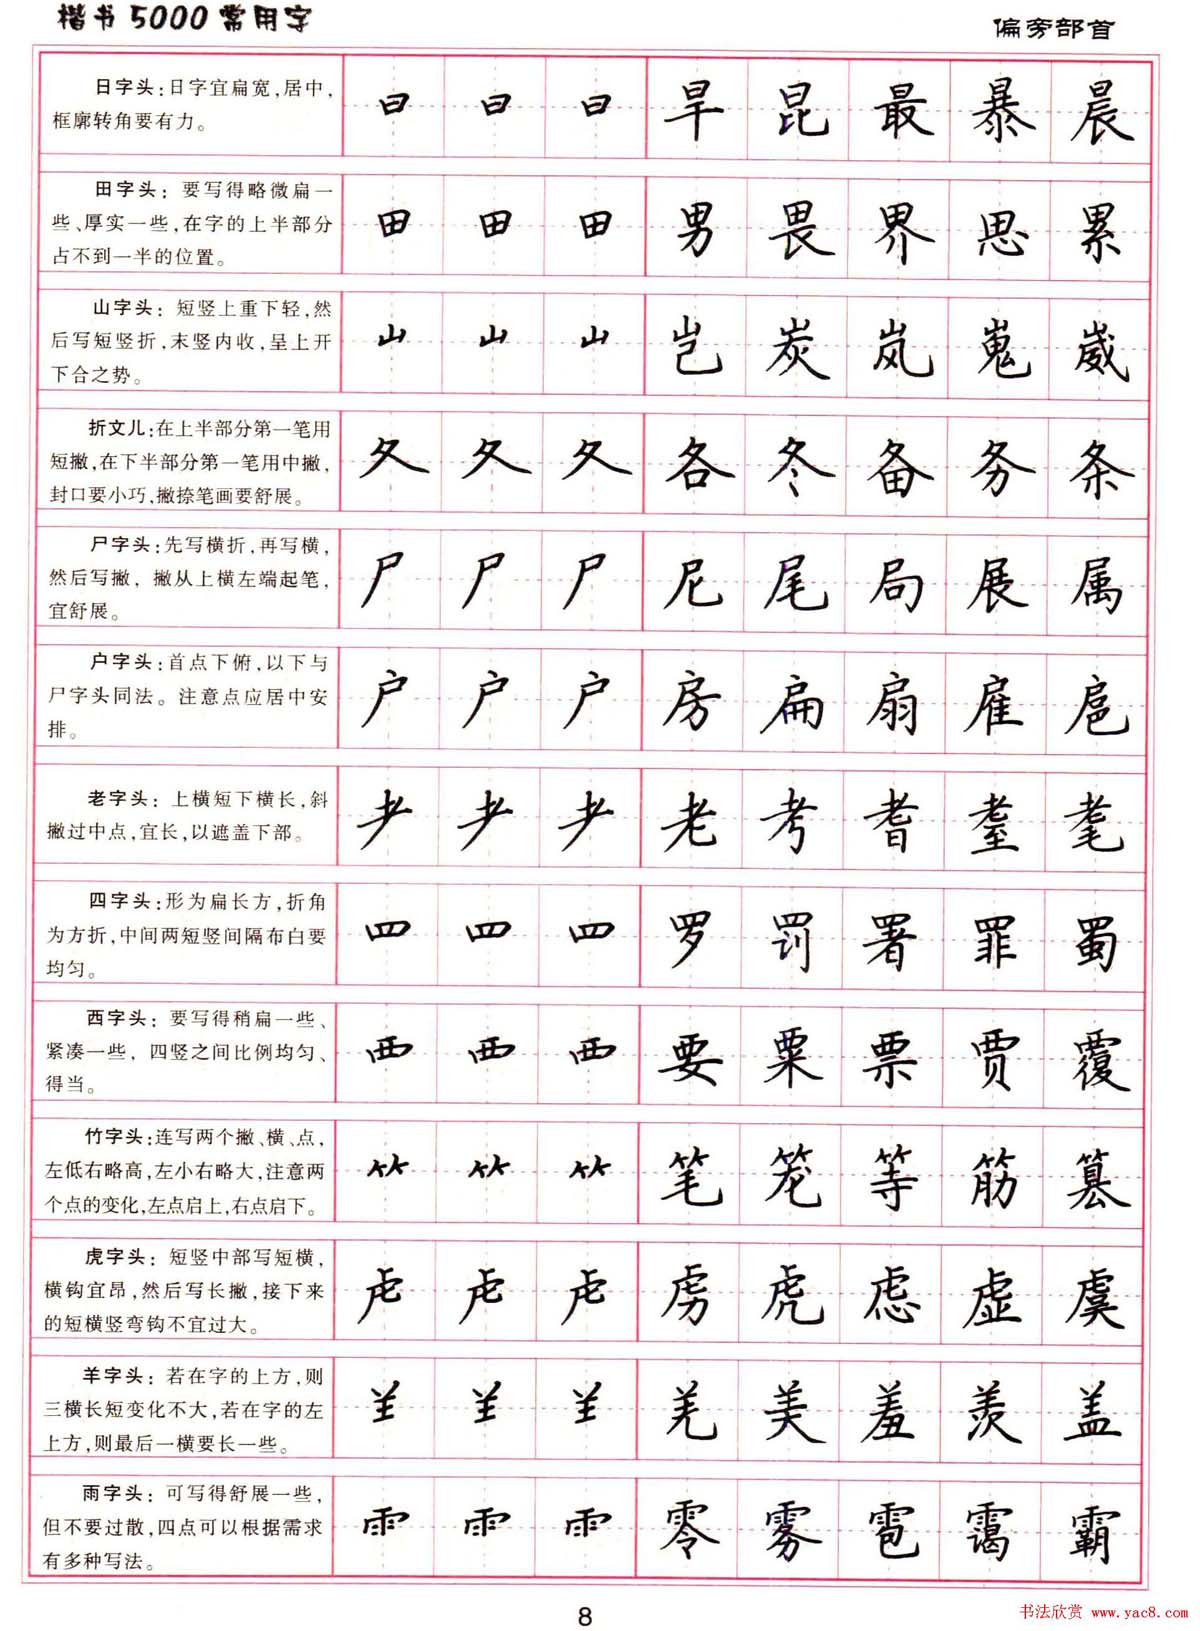 楷书5000常用字
偏旁部首
日字头:日字宜扁宽,居中,
框廓转角要有力。
日 日 日 旱 昆 最 暴 晨
田字头: 要写得略微扁一
些、厚实一些,在字的上半部分
占不到一半的位置。
田 田 田 男 畏 界 思 累
山字头: 短竖上重下轻,然
后写短竖折,末竖内收,呈上开
下合之势。
山 山 山 岂 炭 岚 嵬 崴
折文儿:在上半部分第一笔用
短撇,在下半部分第一笔用中撇,
封口要小巧,撇捺笔画要舒展。
夂 夂 夂 各 冬 备 务 条
尸字头:先写横折,再写横,
然后写撇, 撇从上横左端起笔,
宜舒展。
尸 尸 尸 尼 尾 局 展 属
户字头:首点下俯,以下与
尸字头同法。注意点应居中安
排。
户 户 户 房 扁 扇 雇 扈
老字头: 上横短下横长,斜
撇过中点,宜长,以遮盖下部。
耂 耂 耂 老 考 耆 耋 耄
四字头:形为扁长方,折角
为方折,中间两短竖间隔布白要
均匀。
罒 罒 罒 罗 罚 署 罪 蜀
西字头: 要写得稍扁一些、
紧凑一些, 四竖之间比例均匀、
得当。
覀 覀 覀 要 粟 票 贾 覆
竹字头:连写两个撇、横、点,
左低右略高,左小右略大,注意两
个点的变化,左点启上,右点启下。
⺮ ⺮ ⺮ 笔 笼 等 筋 篡
虎字头: 短竖中部写短横,
横钩宜昂,然后写长撇,接下来
的短横竖弯钩不宜过大。
虍 虍 虍 虏 虎 虑 虚 虞
羊字头: 若在字的上方,则
三横长短变化不大,若在字的左
上方,则最后一横要长一些。
𦍌 𦍌 𦍌 羌 美 羞 羡 盖
雨字头: 可写得舒展一些,
但不要过散,四点可以根据需求
有多种写法。
⻗ ⻗ ⻗ 零 雾 雹 霭 霸
8
书法欣赏 www.yac8.com